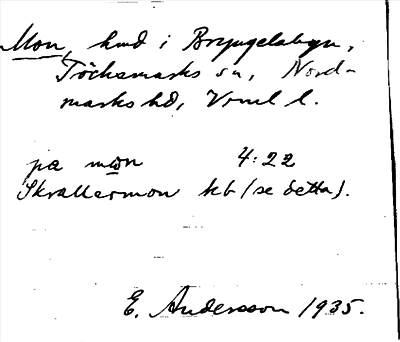 Mon, hmd i Bryngelsbyn,
Töcksmarks sn, Nord-
marks hd, Vrml l.
på mon 4:22
Skrållermon kb (se detta).
E. Andersson 1935.